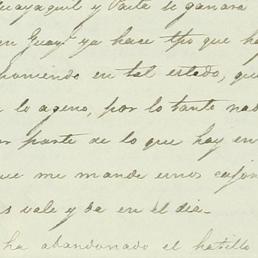 Guayaquil y Parte se ganara
en Guayl ya hace tpo que ha
poniendo en tal estado, que
lo ageno, por lo tanto nad
r parte de lo que hay en
que me mande unos cajon
s vale y va en el dia.
ha abandonado el hatillo